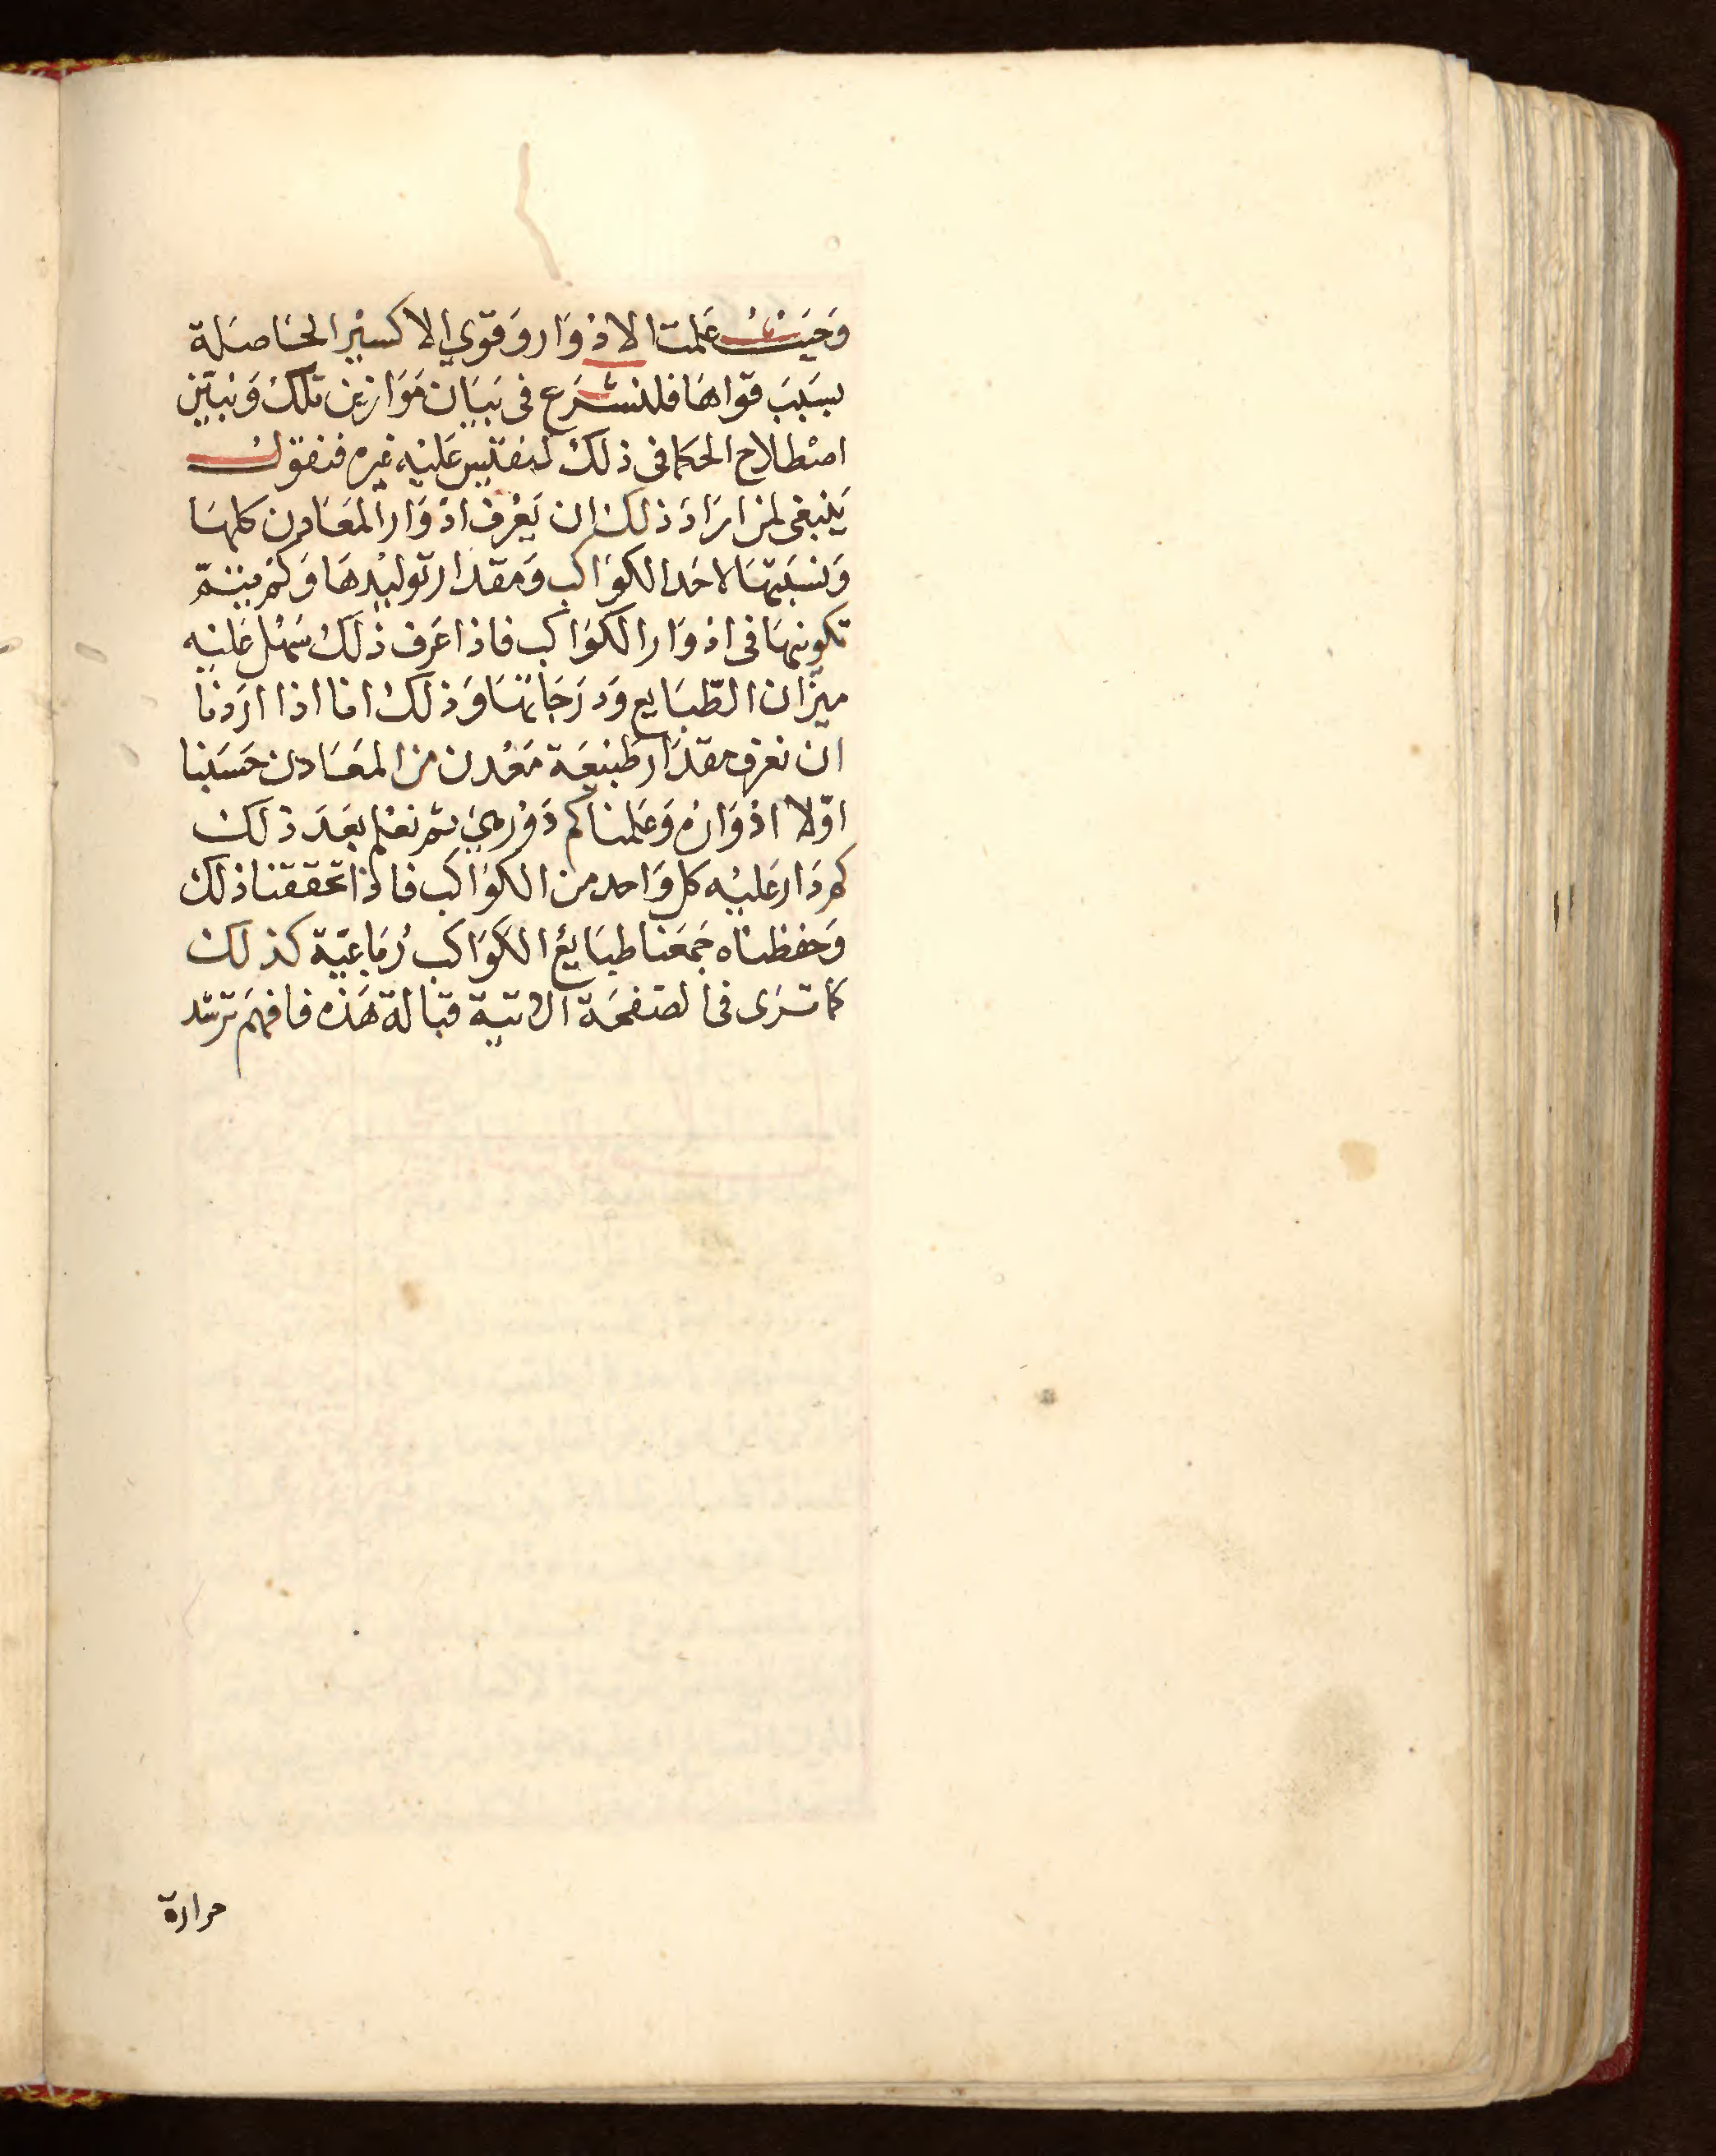 وَحَيثُ عَلمت الادْوَار وَقوي الاكسير الحَاصلَة
بسَبَبَ قواهَا فلنشرَع فى بَيَان مَوَازين تلكَ وَنبيّن
اصْطلاح الحكما فى ذلكَ لنقيس عَليْه غيره فنقولُ
يَنبَغى لمن ارَادَ ذلك ان يَعْرف ادْوَار المعَادن كلهَا
وَنسَبتهَا لاحَد الكوَاكب وَمقدَار توليْدهَا وَكمْ يتمّ
تكوينهَا فى ادْوَار الكوَاكب فاذا عَرف ذلكَ سَهْل عَليْه
ميزَان الطّبَايع وَدرَجَاتهَا وَذلكَ انا اذا ارَدنا
ان نعرف مقدَار طبيعَة مَعْدن من المعَادن حَسَبنا
اوّلا ادْوَارهُ وَعَلمنا كم دَوْر هيَ ثم نعْلم بعَدَ ذلك
كم دَار عَليْه كل وَاحد من الكوَاكب فاذا تحققنا ذلك
وَحفظناه جَمعَنا طبَايعُ الكوَاكب رُبَاعيّة كذلك
كما ترَى فى الصَفحَة الاتية قبالة هَذه فافهَم ترشد
حرارة